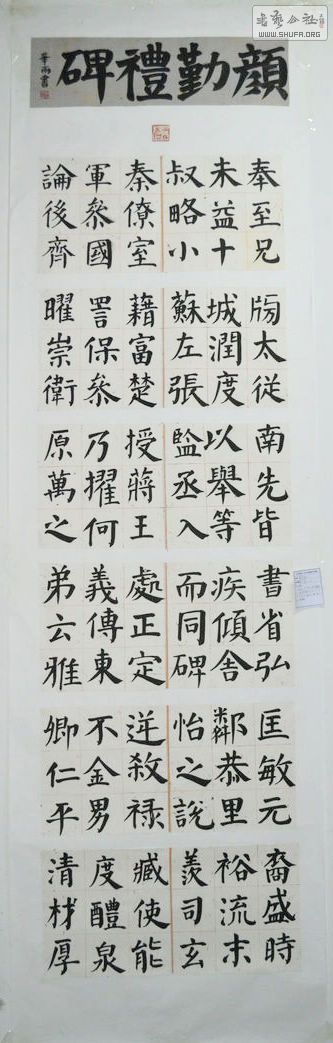 顏勤禮碑
華雨書
WWW.SHUFA.ORG
奉至兄
未益十
叔略小
秦僚室
軍叅國
論後齊
牓太從
城潤度
蘇左張
藉富楚
詈保叅
曜崇衛
南先皆
以舉等
監丞入
授蔣王
乃擢何
原萬之
書省弘
疾傾舍
而同碑
處正定
義傳東
弟云雅
匡敏元
恭里
怡之說
逆殺祿
不金男
卿仁平
裔盛時
裕流末
羨司玄
臧使能
度醴泉
清材厚